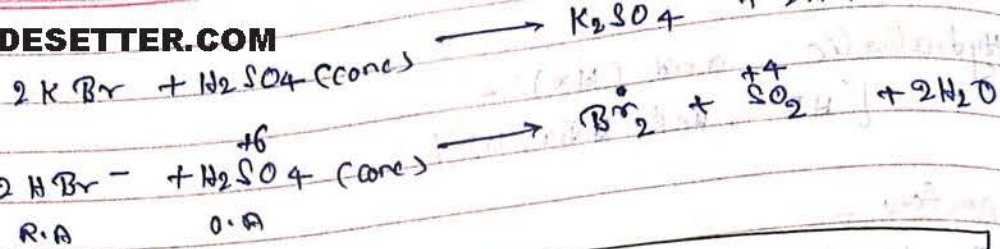 DESETTER.COM
2 K Br + H2SO4 (conc) ⟶ K2SO4
2 H Br⁻ + H2SO4 (conc) ⟶ Br2 + SO2 + 2H2O
+6 0 +4
R.A O.A